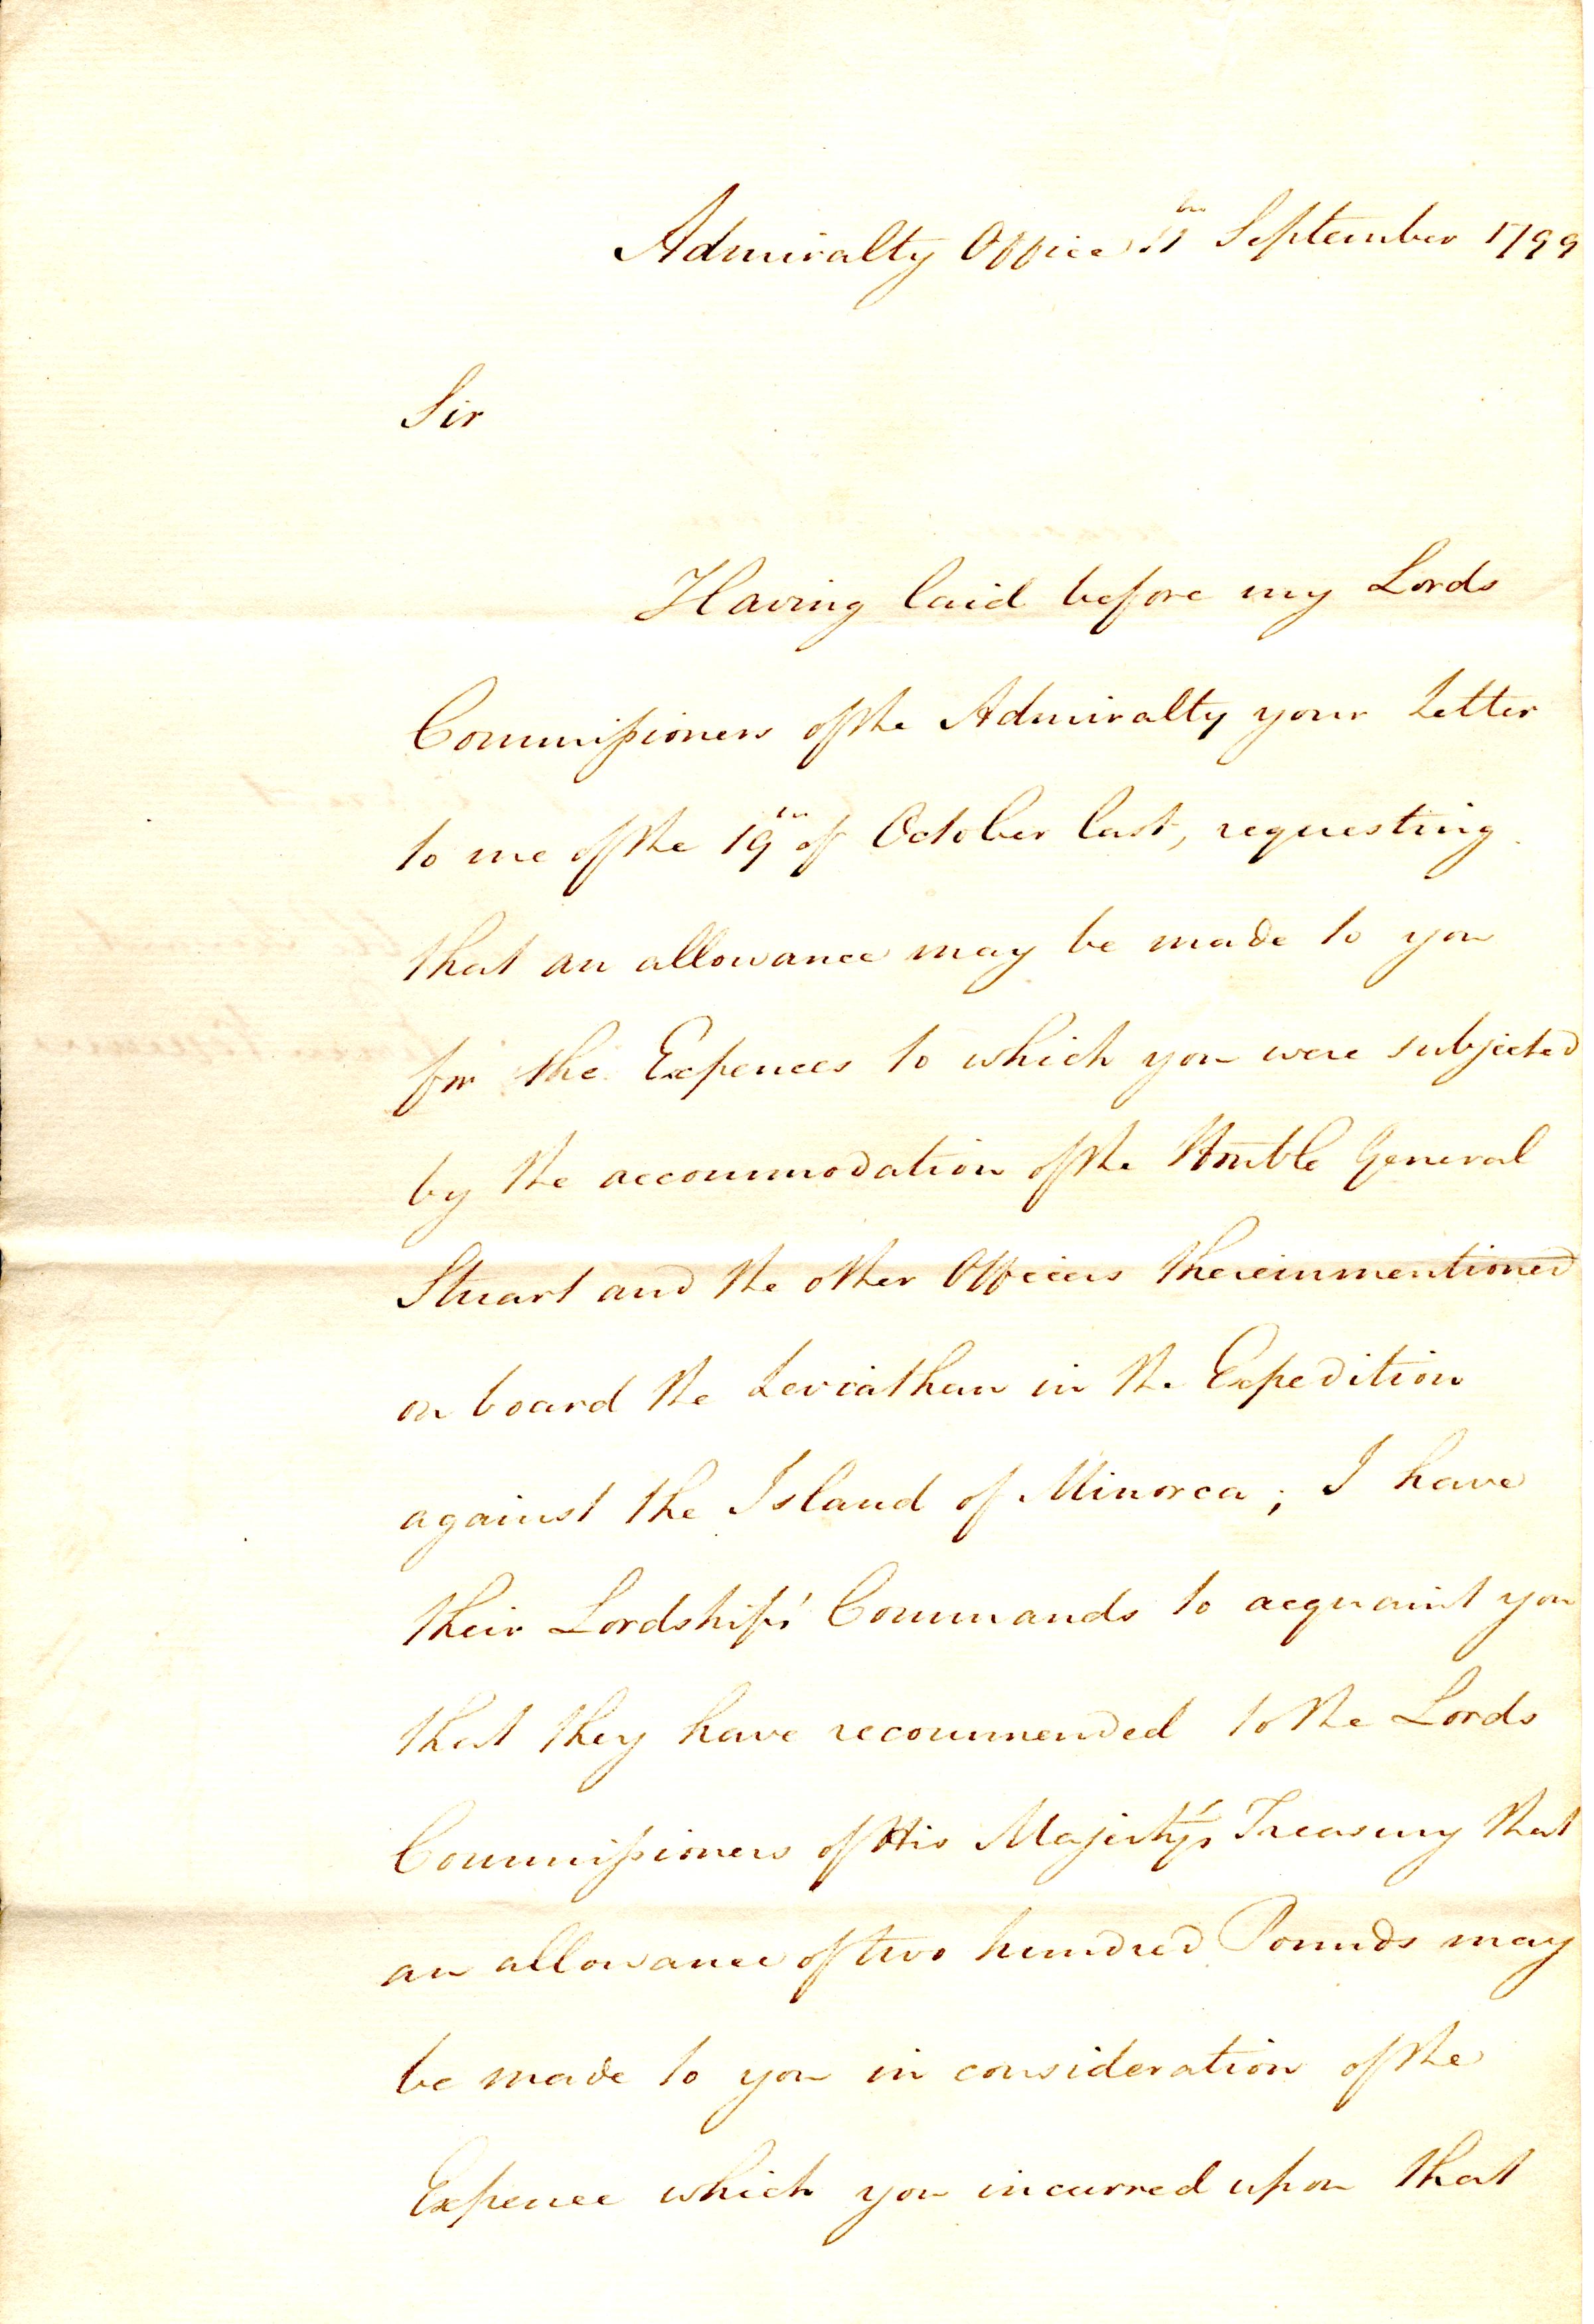 Admiralty Office 11th September 1799
Sir
Having laid before my Lords
Commissioners of the Admiralty your Letter
to me of the 19th of October last, requesting
that an allowance may be made to you
for the Expences to which you were subjected
by the accommodation of the Honble General
Stuart and the other Officers thereinmentioned
on board the Leviathan in the Expedition
against the Island of Minorca; I have
their Lordships' Commands to acquaint you
that they have recommended to the Lords
Commissioners of His Majesty's Treasury that
an allowance of two hundred Pounds may
be made to you in consideration of the
Expence which you incurred upon that